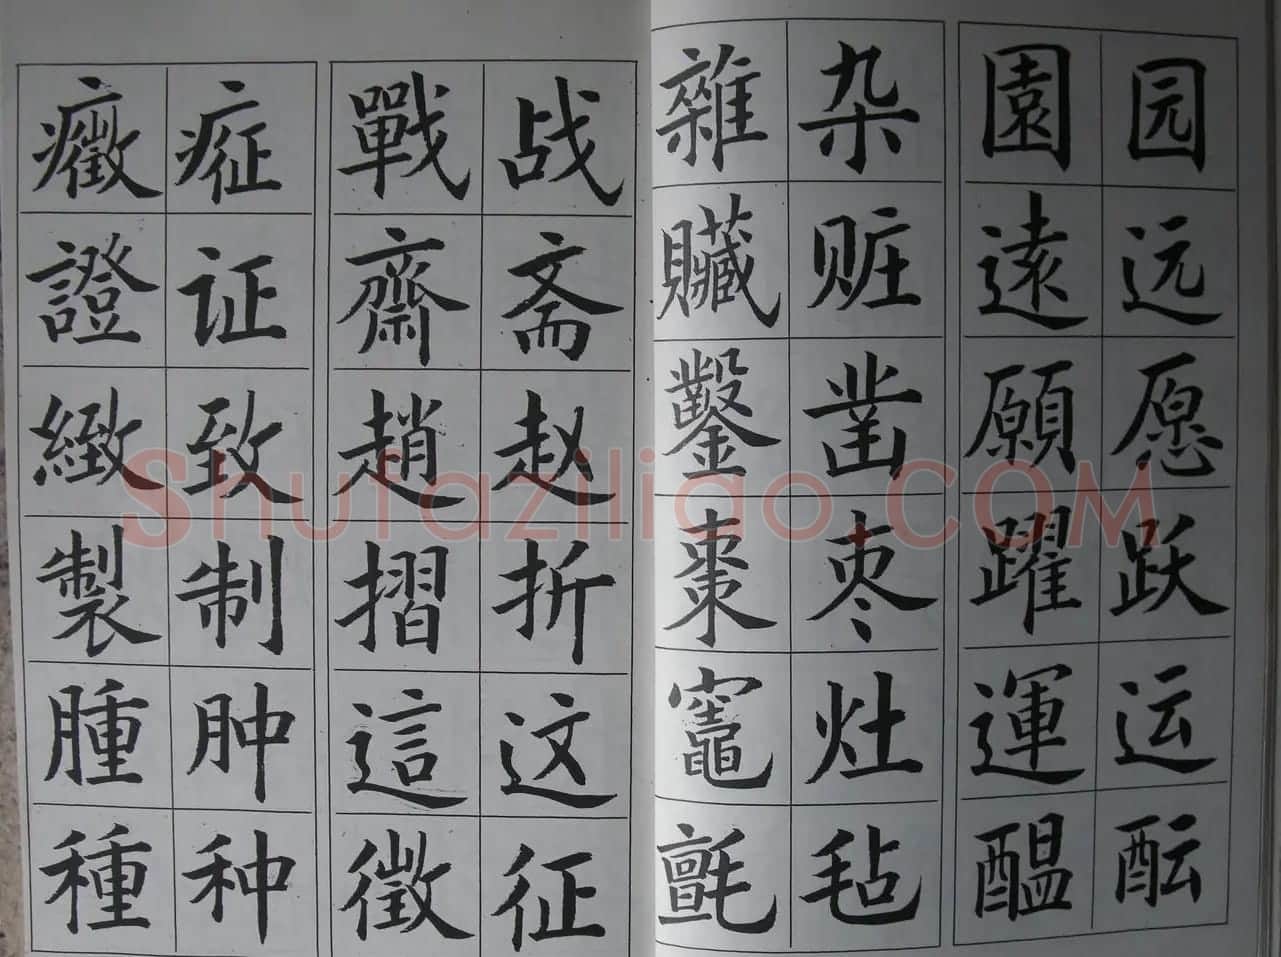 园远愿跃运酝
園遠願躍運醞
杂赃凿枣灶毡
雜贜鑿棗竈氈
战斋赵折这征
戰齋趙摺這徵
症证致制肿种
癥證緻製腫種
Shufaziliao.COM